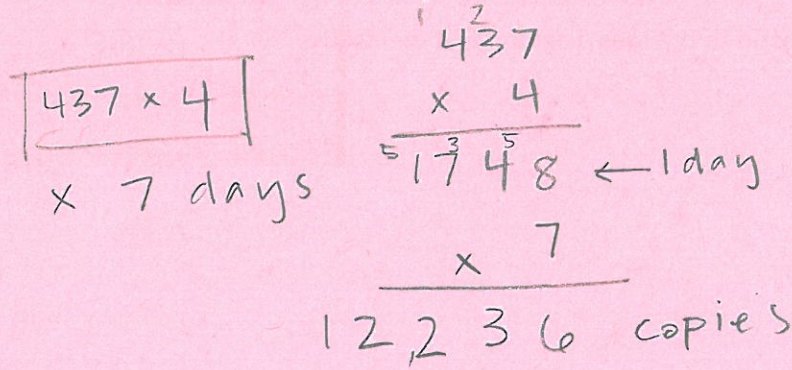 437 x 4
x 7 days
1 2
437
x 4
5 3 5
1748 ← 1 day
x 7
12,236 copies